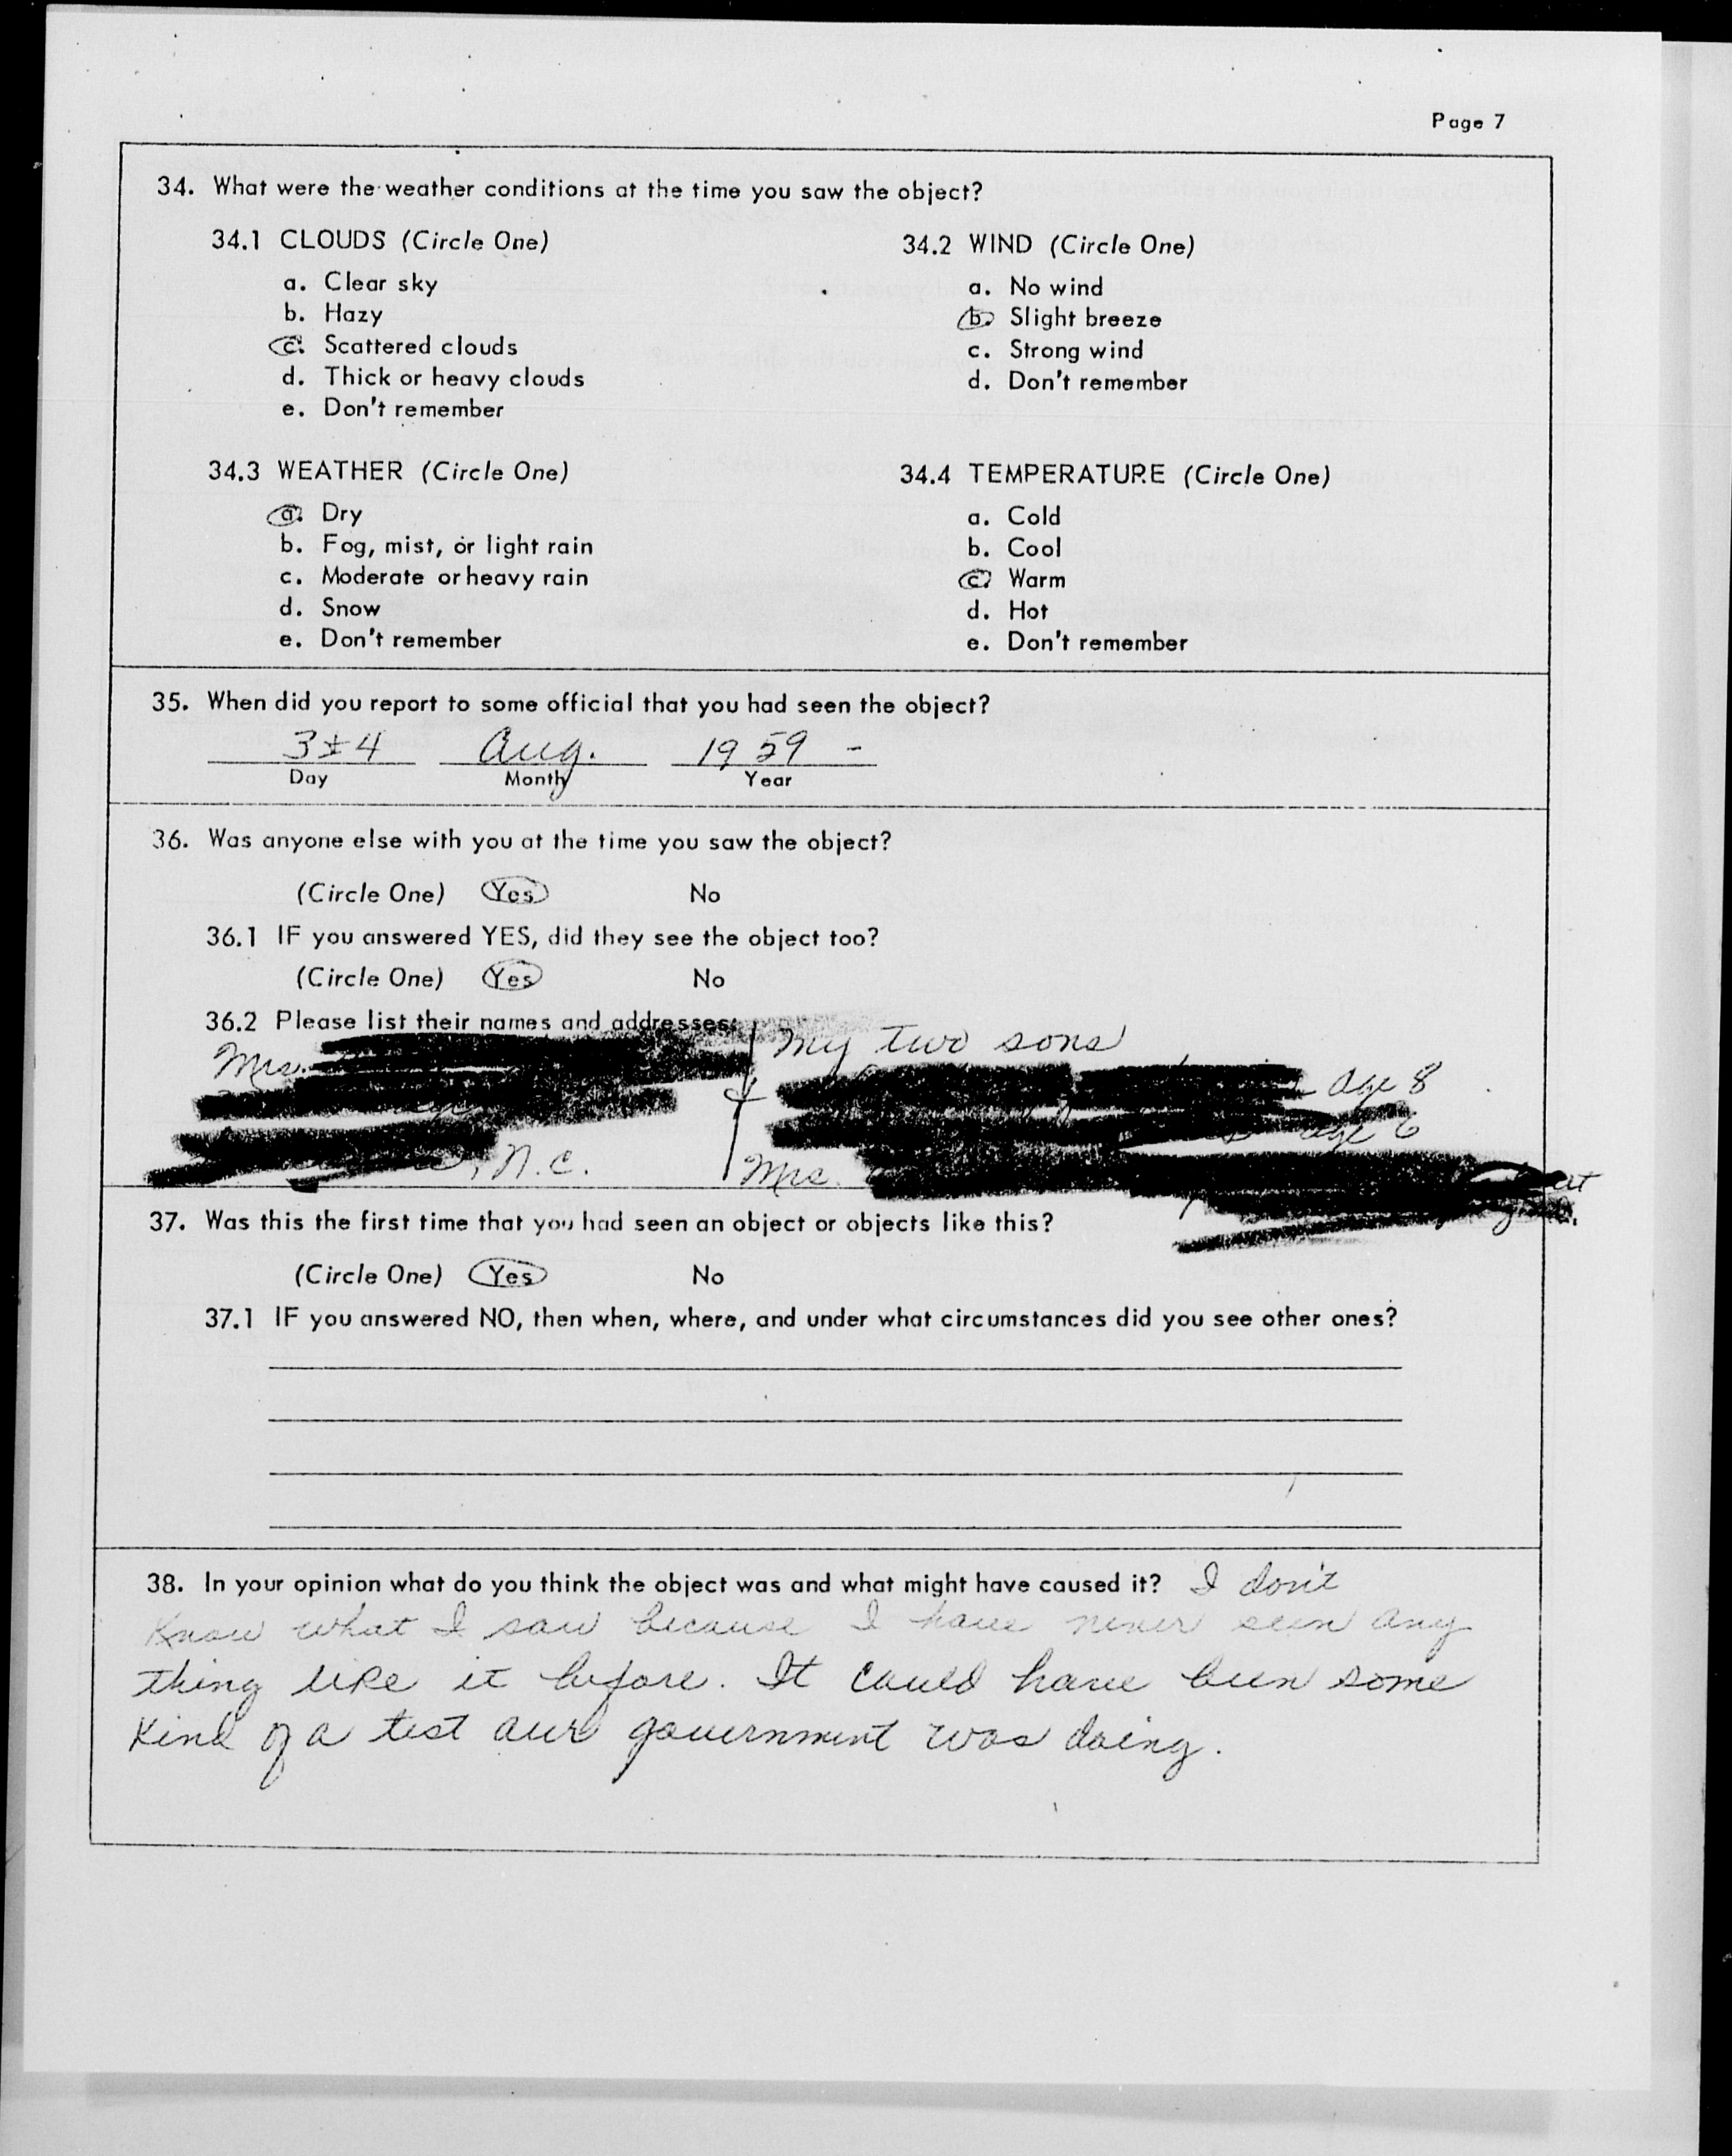 Page 7
34. What were the weather conditions at the time you saw the object?
34.1 CLOUDS (Circle One)
a. Clear sky
b. Hazy
c. Scattered clouds
d. Thick or heavy clouds
e. Don't remember
34.2 WIND (Circle One)
a. No wind
b. Slight breeze
c. Strong wind
d. Don't remember
34.3 WEATHER (Circle One)
a. Dry
b. Fog, mist, or light rain
c. Moderate or heavy rain
d. Snow
e. Don't remember
34.4 TEMPERATURE (Circle One)
a. Cold
b. Cool
c. Warm
d. Hot
e. Don't remember
35. When did you report to some official that you had seen the object?
3 & 4 Aug. 1959 -
Day Month Year
36. Was anyone else with you at the time you saw the object?
(Circle One) Yes No
36.1 IF you answered YES, did they see the object too?
(Circle One) Yes No
36.2 Please list their names and addresses:
Mrs.
, N.C.
My two sons
& age 8
age 6
Mrs.
37. Was this the first time that you had seen an object or objects like this?
(Circle One) Yes No
37.1 IF you answered NO, then when, where, and under what circumstances did you see other ones?
38. In your opinion what do you think the object was and what might have caused it? I don't
know what I saw because I have never seen any
thing like it before. It could have been some
kind of a test our government was doing.